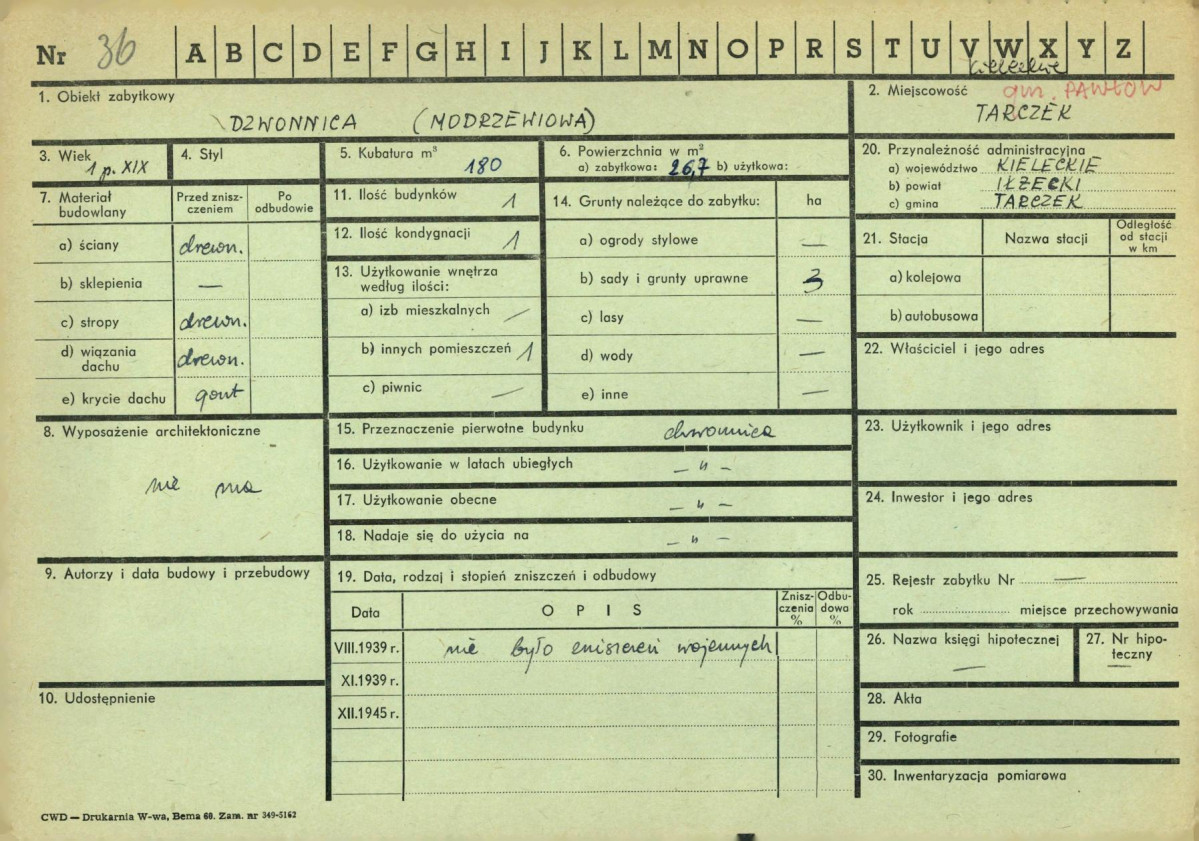 Nr 36 A B C D E F G H I J K L M N O P R S T U V W X Y Z
kieleckie
1. Obiekt zabytkowy
DZWONNICA (MODRZEWIOWA)
2. Miejscowość gm. PAWŁÓW
TARCZEK
3. Wiek
1 p. XIX
4. Styl
5. Kubatura m³
180
6. Powierzchnia w m²
a) zabytkowa: 26,7 b) użytkowa:
20. Przynależność administracyjna
a) województwo KIELECKIE
b) powiat IŁŻECKI
c) gmina TARCZEK
7. Materiał budowlany
Przed zniszczeniem
Po odbudowie
a) ściany drewn.
b) sklepienia —
c) stropy drewn.
d) wiązania dachu drewn.
e) krycie dachu gont
11. Ilość budynków 1
12. Ilość kondygnacji 1
13. Użytkowanie wnętrza
według ilości:
a) izb mieszkalnych —
b) innych pomieszczeń 1
c) piwnic —
14. Grunty należące do zabytku: ha
a) ogrody stylowe —
b) sady i grunty uprawne 3
c) lasy —
d) wody —
e) inne —
21. Stacja
Nazwa stacji
Odległość od stacji w km
a) kolejowa
b) autobusowa
22. Właściciel i jego adres
8. Wyposażenie architektoniczne
nie ma
15. Przeznaczenie pierwotne budynku dzwonnica
16. Użytkowanie w latach ubiegłych – „ –
17. Użytkowanie obecne – „ –
18. Nadaje się do użycia na – „ –
23. Użytkownik i jego adres
24. Inwestor i jego adres
9. Autorzy i data budowy i przebudowy
10. Udostępnienie
19. Data, rodzaj i stopień zniszczeń i odbudowy
Data
OPIS
Zniszczenia %
Odbudowa %
VIII.1939 r. nie było zniszczeń wojennych
XI.1939 r.
XII.1945 r.
25. Rejestr zabytku Nr —
rok miejsce przechowywania
26. Nazwa księgi hipotecznej
—
27. Nr hipoteczny
—
28. Akta
29. Fotografie
30. Inwentaryzacja pomiarowa
CWD — Drukarnia W-wa, Bema 60. Zam. nr 349-5162